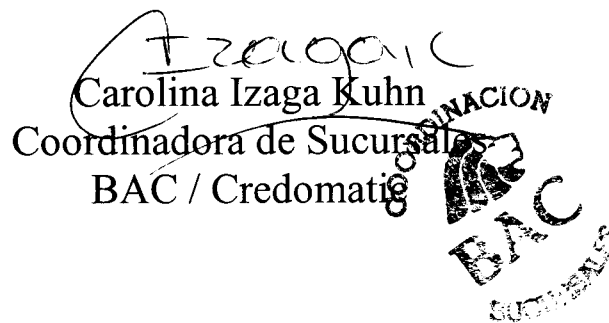 Carolina Izaga Kuhn
Coordinadora de Sucursales
BAC / Credomatic
COORDINACION
BAC
SUCURSALES